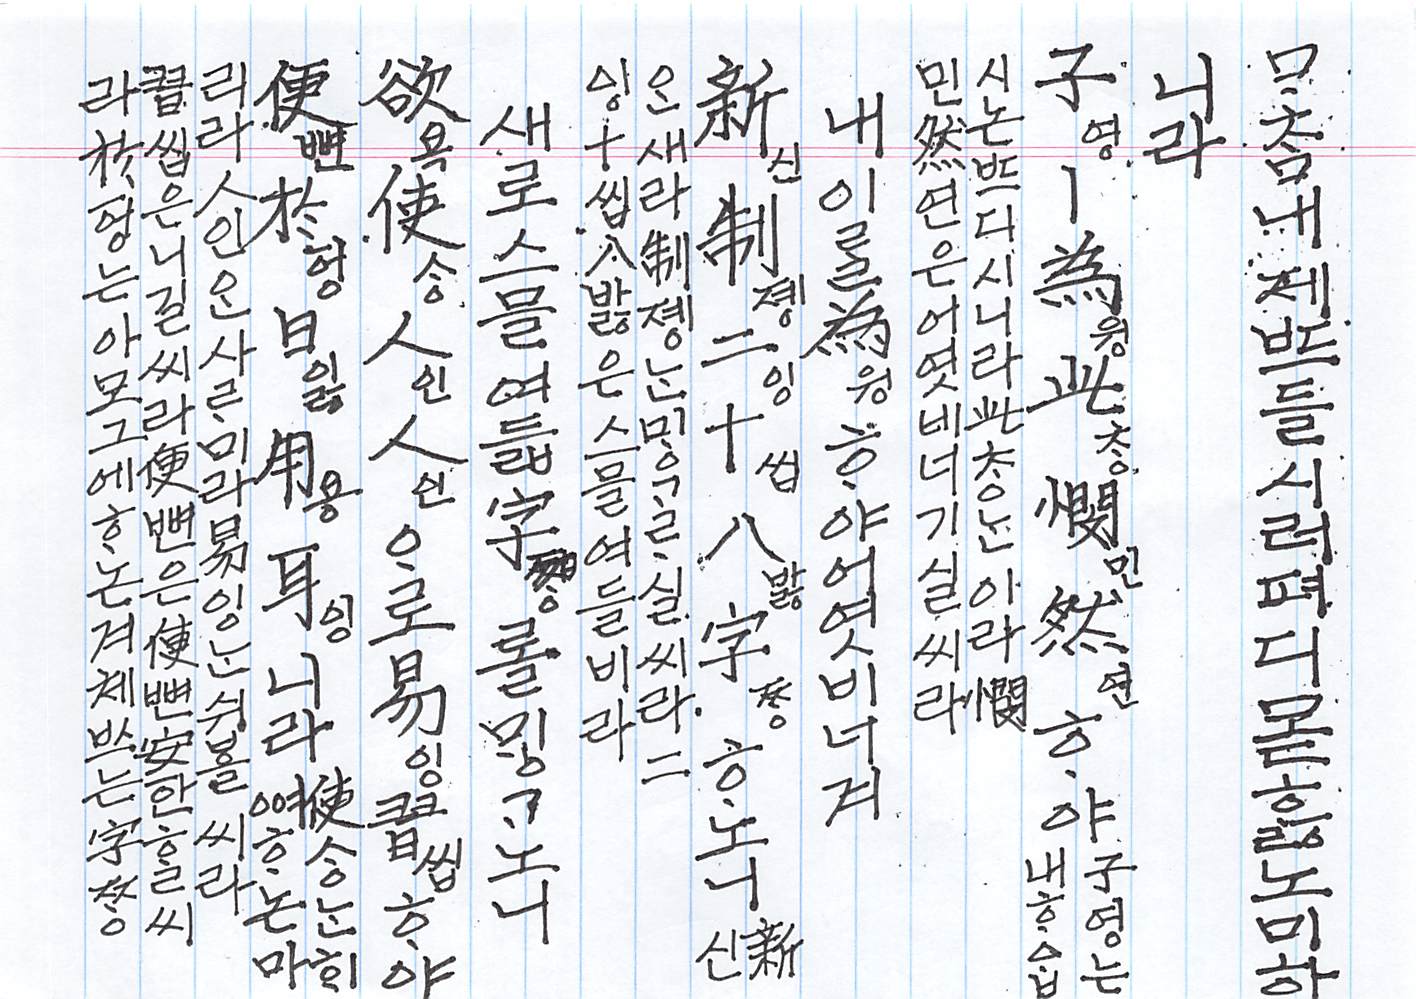 ᄆᆞᄎᆞᆷ내제ᄠᅳ들시러펴디몯ᄒᆞᇙ노미하
니라
子영ㅣ為윙此ᄎᆞᆼ憫민然연ᄒᆞ야
子영는
내ᄒᆞᅀᆞᆸ
시논ᄠᅳ디시니라此ᄎᆞᆼᄂᆞᆫ이라憫
민然연은어엿비너기실씨라
내이ᄅᆞᆯ為윙ᄒᆞ야어엿비너겨
新신制졩二ᅀᅵᆼ十씹八바ᇙ字ᄍᆞᆼᄒᆞ노니
新
신
ᄋᆞᆫ새라制졩ᄂᆞᆫᄆᆡᇰᄀᆞᄅᆞ실씨라二
ᅀᅵᆼ十씹八바ᇙ은스믈여들비라
새로스믈여듧字ᄍᆞᆼᄅᆞᆯᄆᆡᇰᄀᆞ노니
欲욕使ᄉᆞᆼ人ᅀᅵᆫ人ᅀᅵᆫᄋᆞ로易잉習씹ᄒᆞ야
便뼌於ᅙᅥᆼ日ᅀᅵᇙ用용耳ᅀᅵᆼ니라
使ᄉᆞᆼᄂᆞᆫᄒᆡ
ᅇᅧᄒᆞ논마
리라人ᅀᅵᆫᄋᆞᆫ사ᄅᆞ미라易잉ᄂᆞᆫ쉬ᄫᅳᆯ씨라
習씹은니길씨라便뼌은便뼌安한ᄒᆞᆯ씨
라於ᅙᅥᆼ는아모그에ᄒᆞ논겨체ᄡᅳ는字ᄍᆞᆼ